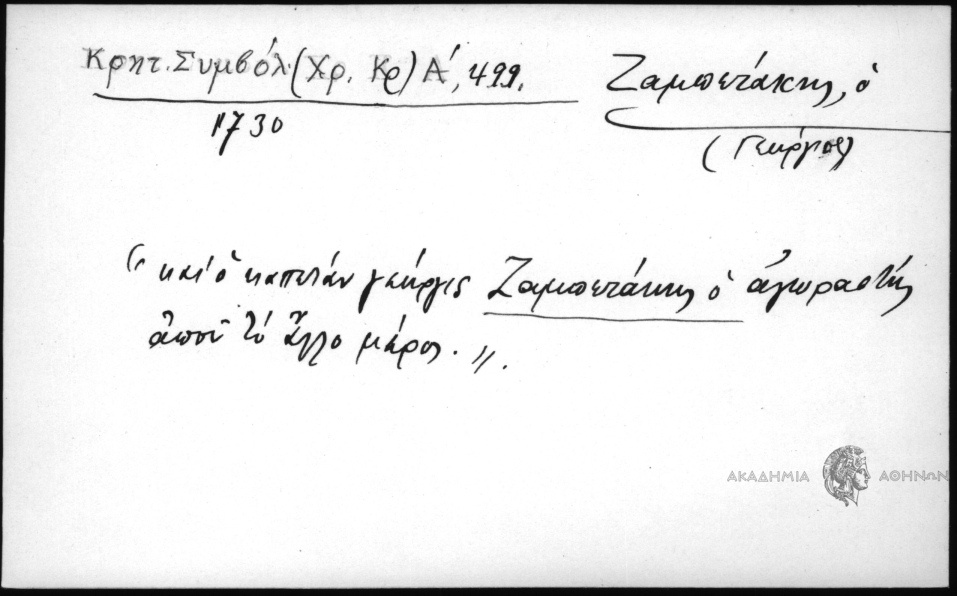 Κρητ. Συμβόλ. (Χρ. Κρ) Α', 499.
1730
Ζαμπετάκης, ὁ
(Γεώργιος)
"καὶ ὁ καπετάν γεώργις Ζαμπετάκης ὁ ἀγοραστής
ἀπού τό ἄλλο μέρος.".
ΑΚΑΔΗΜΙΑ ΑΘΗΝΩΝ